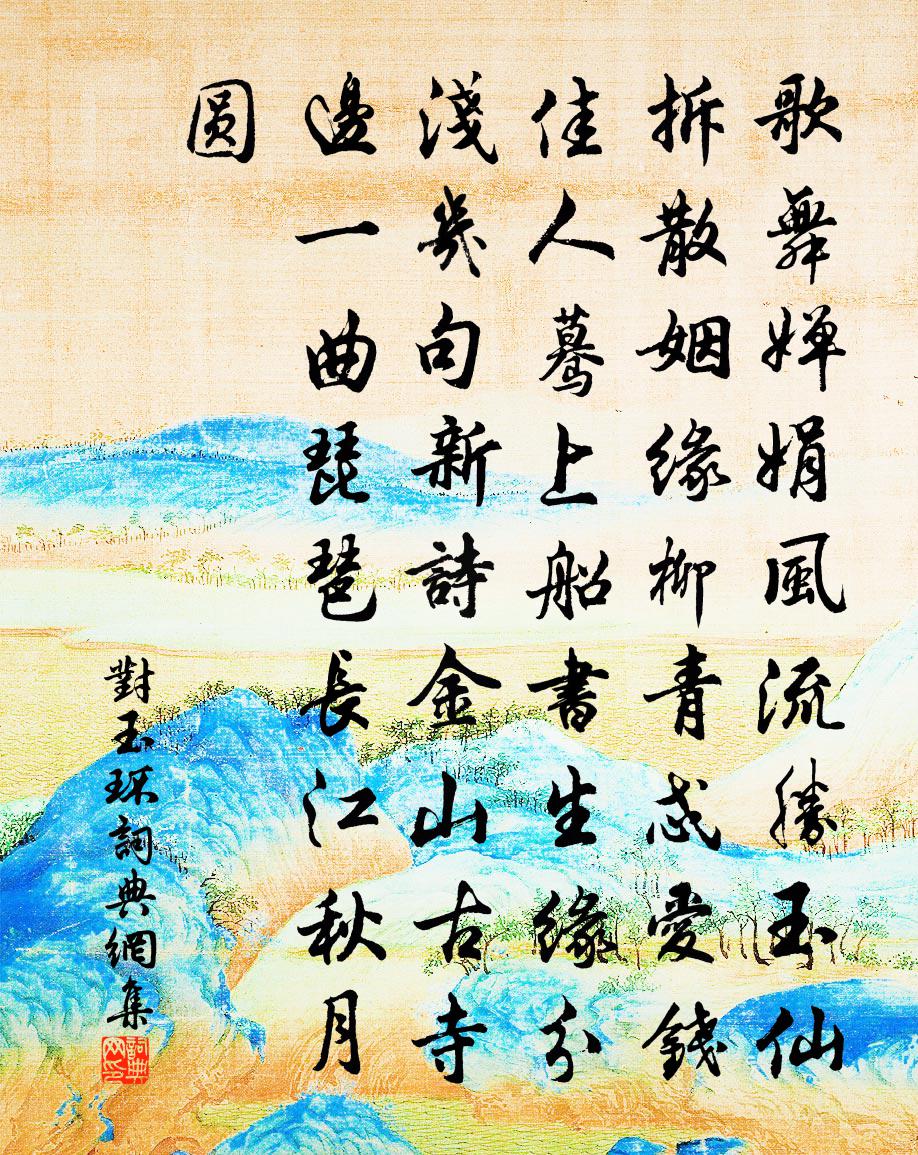 歌舞嬋娟風流勝玉仙
拆散姻緣柳青忒愛錢
佳人驀上船書生緣分
淺幾句新詩金山古寺
邊一曲琵琶長江秋月
圓
對玉環詞典網集
詞典网印